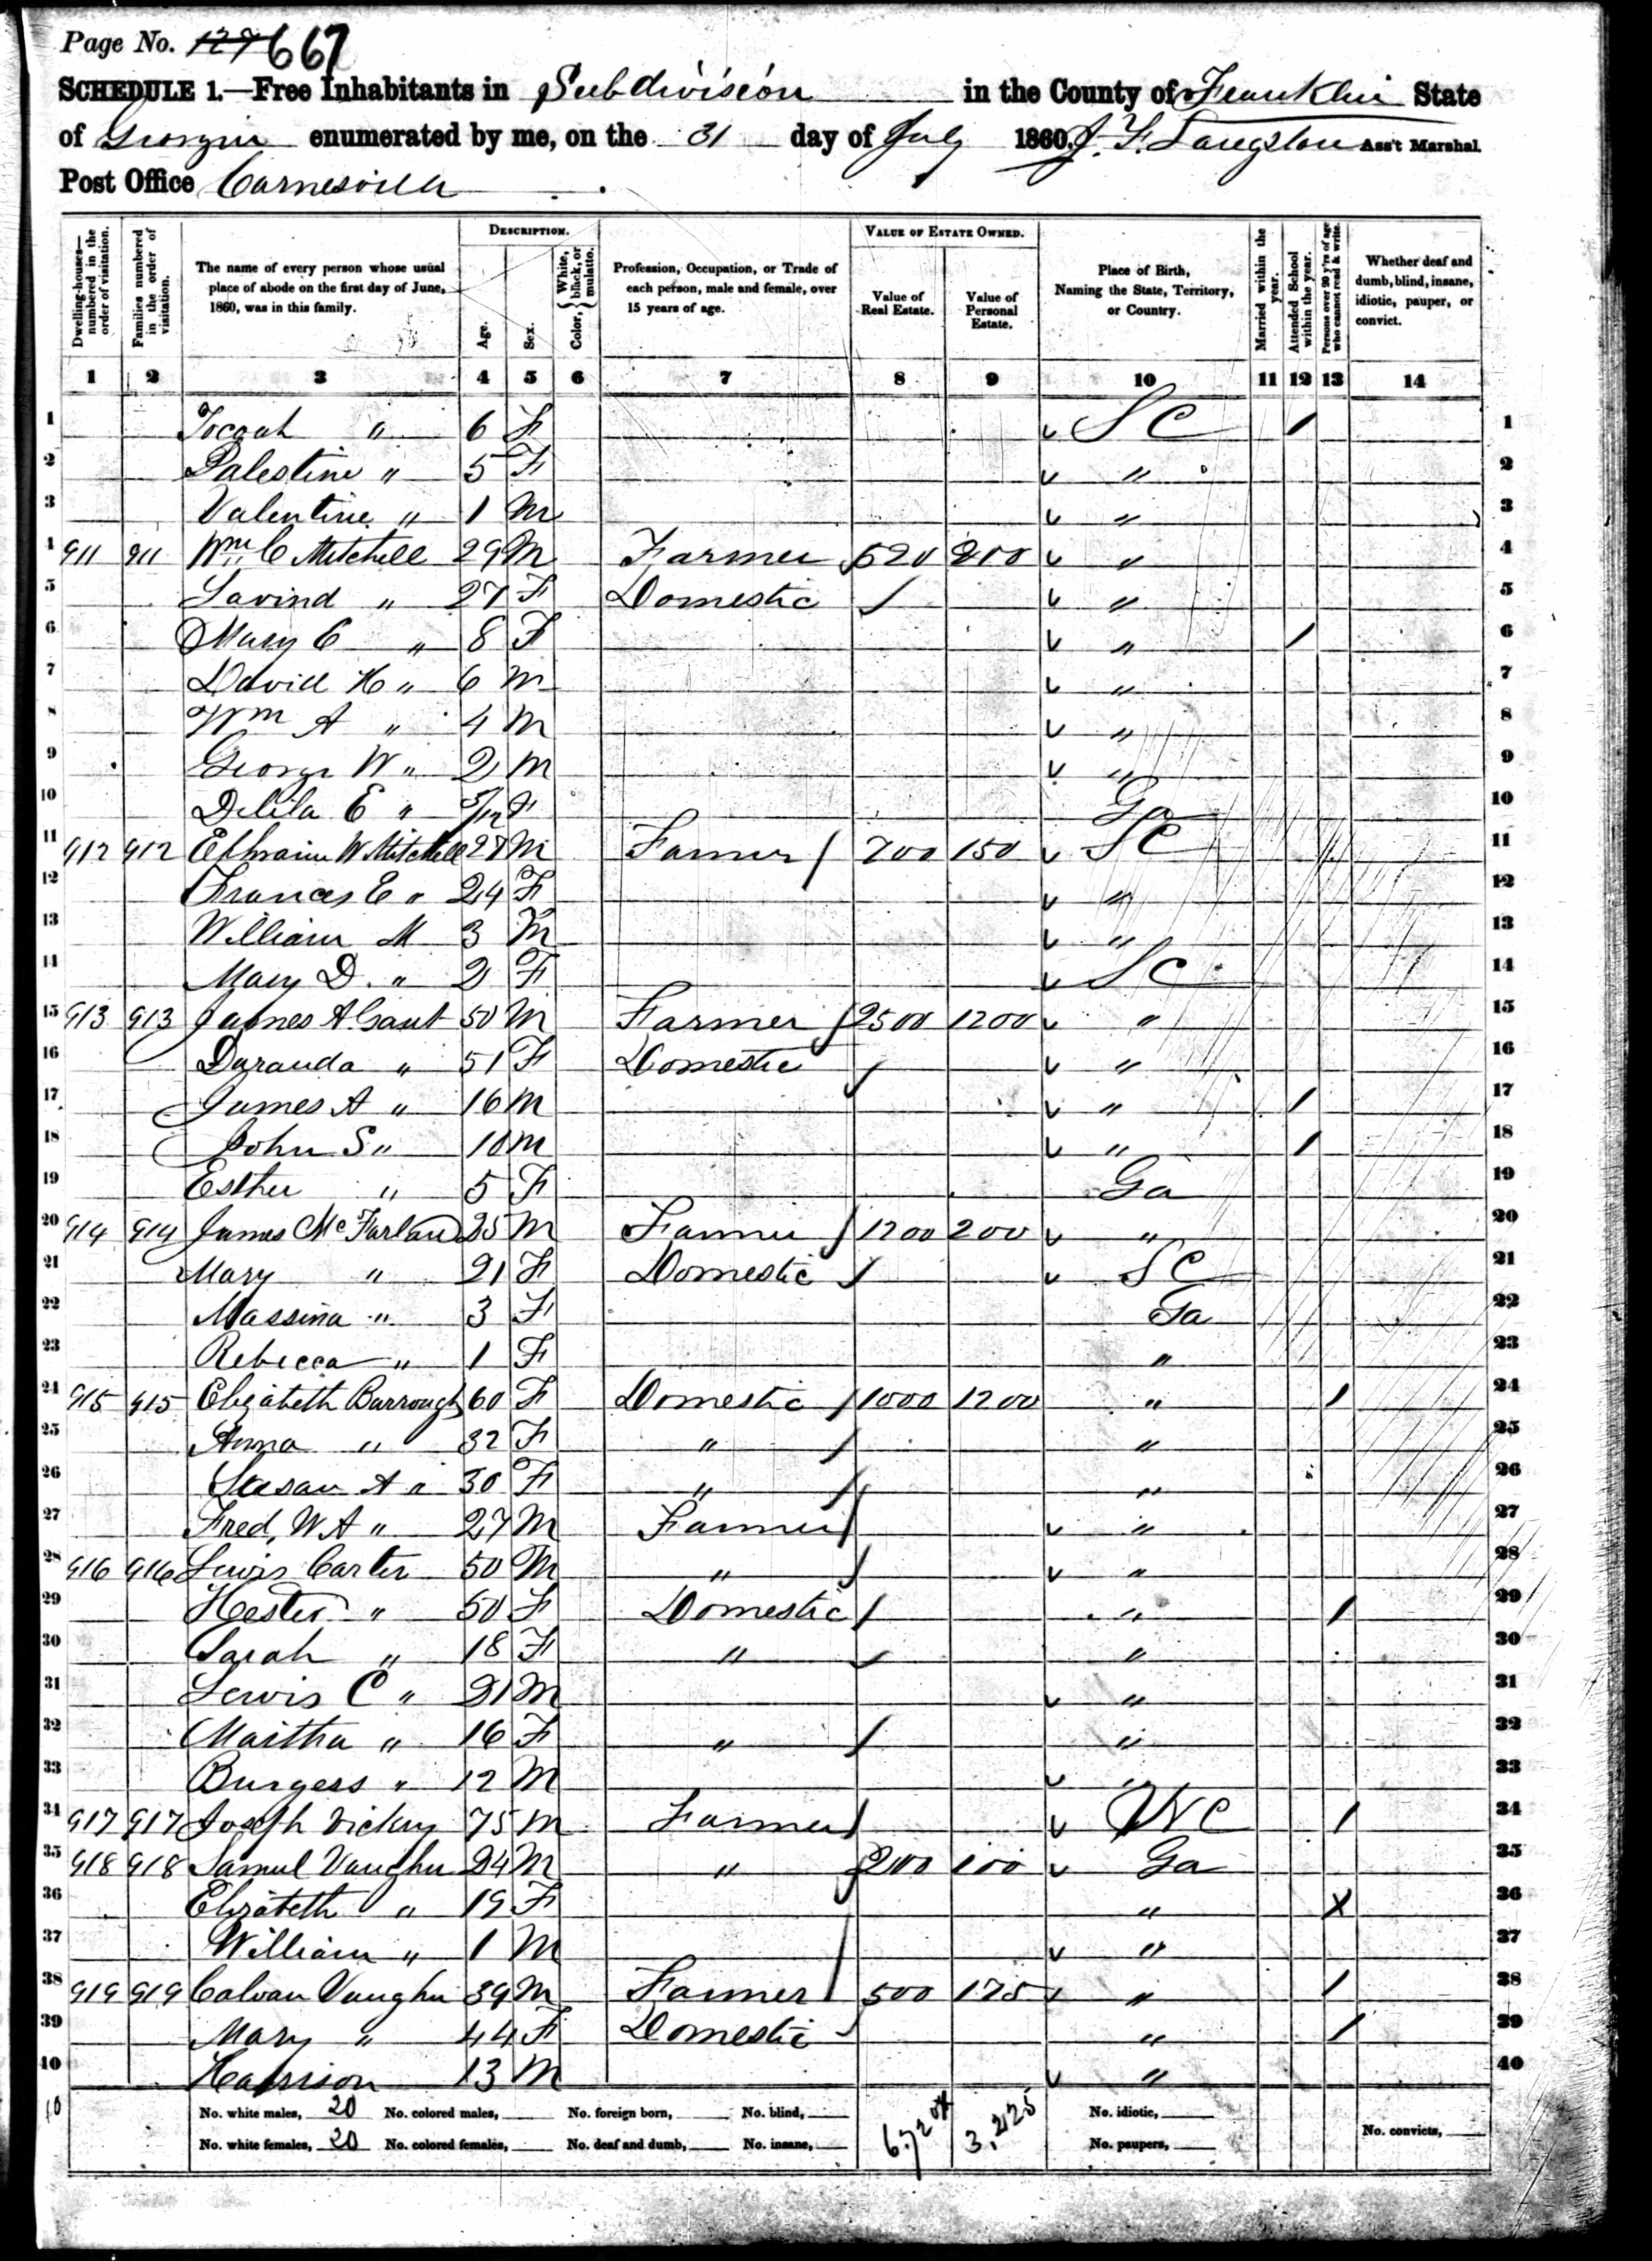 Page No. 129 667
SCHEDULE 1.—Free Inhabitants in Subdivision in the County of Franklin State
of Georgia enumerated by me, on the 31 day of July 1860. J. F. Langston Ass't Marshal.
Post Office Carnesville
DESCRIPTION. VALUE OF ESTATE OWNED.
Dwelling-houses—numbered in the order of visitation.
Families numbered in the order of visitation.
The name of every person whose usual place of abode on the first day of June, 1860, was in this family.
Age.
Sex.
Color, White, black, or mulatto.
Profession, Occupation, or Trade of each person, male and female, over 15 years of age.
Value of Real Estate.
Value of Personal Estate.
Place of Birth, Naming the State, Territory, or Country.
Married within the year.
Attended School within the year.
Persons over 20 y'rs of age who cannot read & write.
Whether deaf and dumb, blind, insane, idiotic, pauper, or convict.
1 2 3 4 5 6 7 8 9 10 11 12 13 14
1 Tocoah " 6 F S C / 1
2 Palestine " 5 F " 2
3 Valentine " 1 M " 3
4 911 911 Wm C Mitchell 29 M Farmer 520 200 " 4
5 Lavind " 27 F Domestic " 5
6 Mary C " 8 F " / 6
7 David H " 6 M " 7
8 Wm A " 4 M " 8
9 George W " 2 M " 9
10 Delila E " 5/12 F Ga 10
11 912 912 Ephraim W Mitchell 28 M Farmer 700 150 S C 11
12 Frances E " 24 F " 12
13 William M 3 M " 13
14 Mary D. " 2 F S C 14
15 913 913 James A Gaut 50 M Farmer 2500 1200 " 15
16 Daranda " 51 F Domestic " 16
17 James A " 16 M " / 17
18 John S " 10 M " / 18
19 Esther " 5 F Ga 19
20 914 914 James McFarland 25 M Farmer 1200 200 " 20
21 Mary " 21 F Domestic S C 21
22 Massina " 3 F Ga 22
23 Rebecca " 1 F " 23
24 915 915 Elizabeth Burrough 60 F Domestic 1000 1200 " / 24
25 Anna " 32 F " " 25
26 Susan A " 30 F " " 26
27 Fred. W A " 27 M Farmer " 27
28 916 916 Lewis Carter 50 M " " 28
29 Hester " 50 F Domestic " / 29
30 Sarah " 18 F " " 30
31 Lewis C " 21 M " 31
32 Martha " 16 F " " 32
33 Burgess " 12 M " 33
34 917 917 Joseph Vickery 75 M Farmer N C / 34
35 918 918 Samul Vaughn 24 M " 200 100 Ga 35
36 Elizabeth " 19 F " X 36
37 William " 1 M " 37
38 919 919 Calvan Vaughn 39 M Farmer 500 175 " / 38
39 Mary " 44 F Domestic " / 39
40 Harrison 13 M " 40
No. white males, 20 No. colored males, No. foreign born, No. blind, No. idiotic,
No. white females, 20 No. colored females, No. deaf and dumb, No. insane, 3,225 No. paupers, No. convicts,